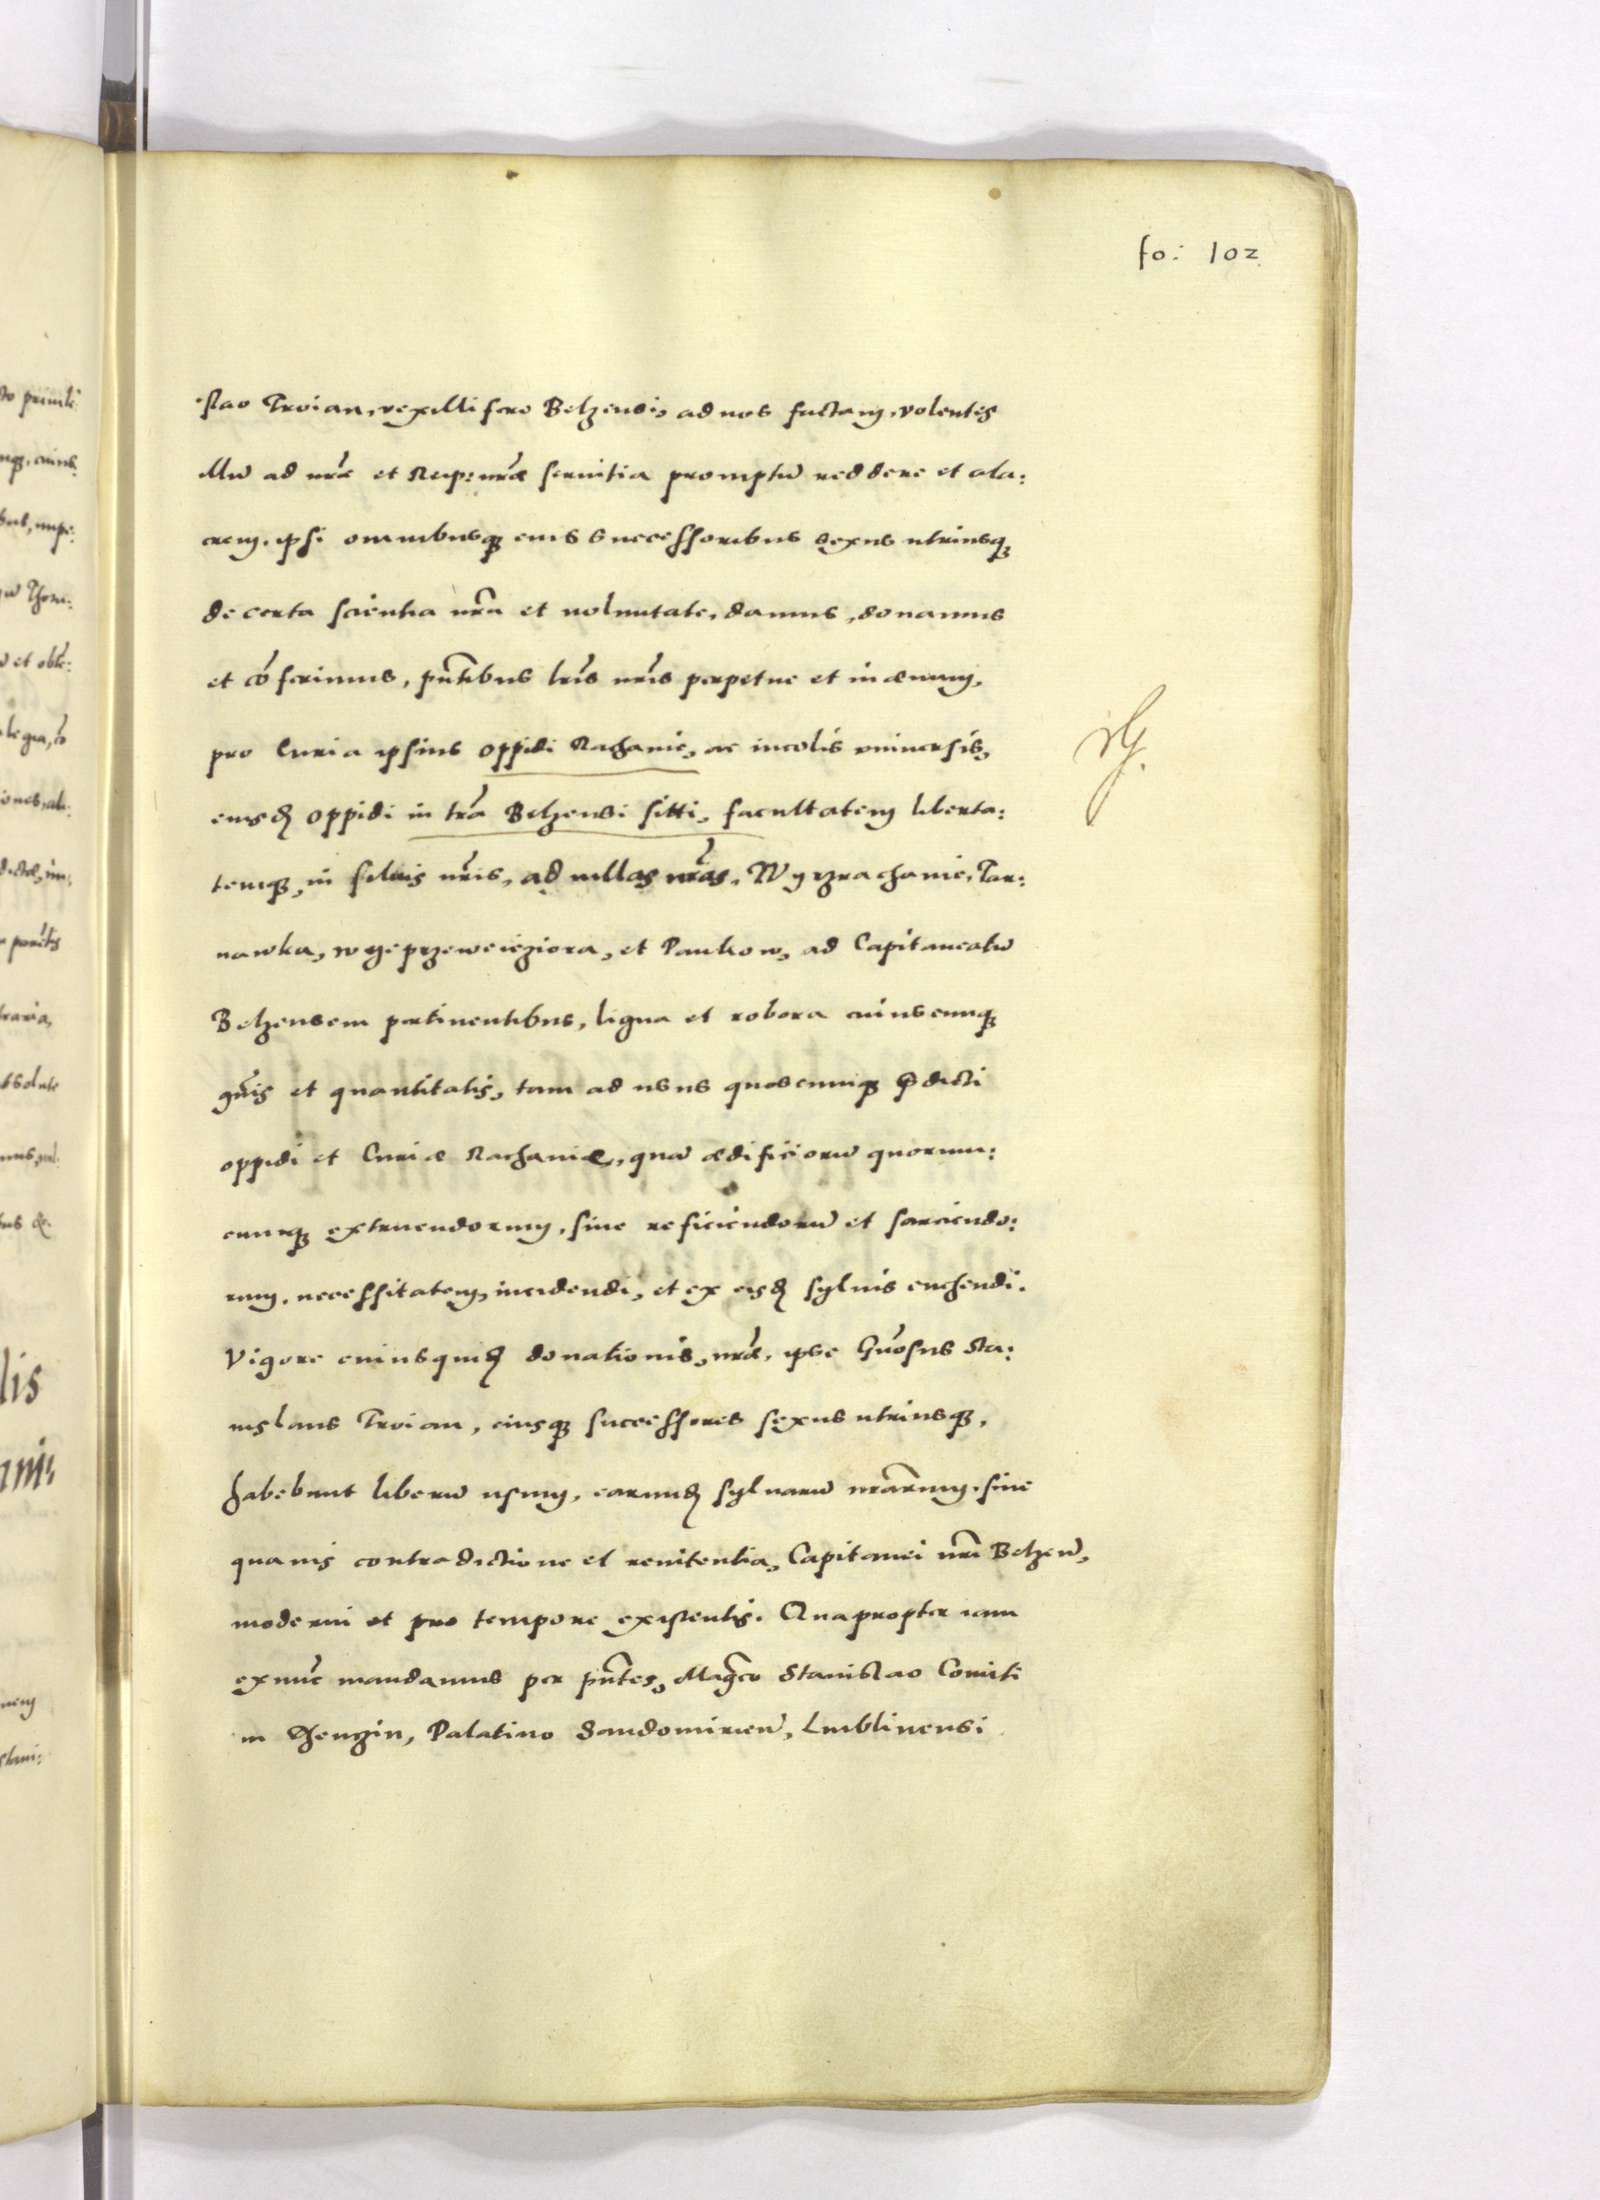 fo: 102
slao Troian, vexillifero Belzensi, ad nos factam, volentes
illū ad nr̃ae et Reip: nr̃ae seruitia promptū reddere et ala:
crem, ipsi omnibusq̨ eius successoribus sexus utriusq̨
de certa scientia nr̃a et uoluntate, damus, donamus
et cōferimus, pñtibus lr̃is nr̃is perpetue et in aeuum,
pro Curia ipsius oppidi Rachanie, ac incolis vniuersis,
eiusd̨ oppidi in tr̃a Belzensi sitti, facultatem liberta:
temq̨, in siluis nr̃is, ad uillas nr̃as, Wyrzrachanie, Tar:
nawka, et Pankow, ad Capitaneatū
Belzensem pertinentibus, ligna et robora cuiuscunq̨
gñis et quantitatis, tam ad usus quoscunq̨ p̃dicti
oppidi et Curiae Rachaniae, quā aedificiorū quorum:
cunq̨ extruendorum, siue reficiendorū et sarciendo:
rum, necessitatem, incidendi, et ex eisd̨ syluis euehendi.
Vigore cuiusquid̨ donationis, nr̃ae, ipse Gñosus Sta:
nislaus Troian, eiusq̨ successores sexus utriusq̨,
habebunt liberū usum, earund̨ syluarū nr̃arum, sine
quauis contradictione et renitentia, Capitanei nr̃i Belzeñ,
moderni et pro tempore existentis. Quapropter iam
ex nūc mandamus per pñtes, Mag̃co Stanislao Comiti
in Thenzin, Palatino Sandomirieñ, Lublinensi